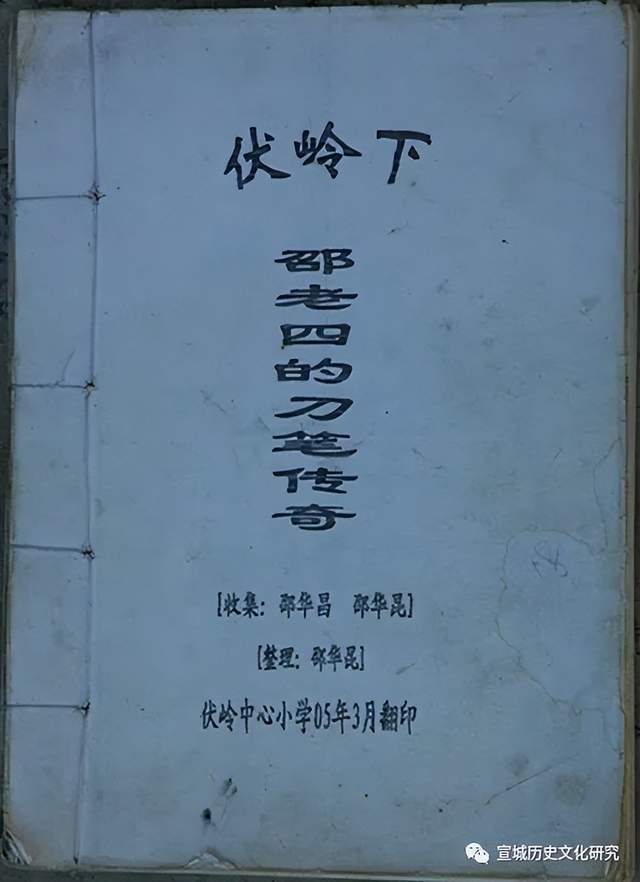 伏岭下
邵老四的刀笔传奇
[收集：邵华昌 邵华昆]
[整理：邵华昆]
伏岭中心小学05年3月翻印
宣城历史文化研究